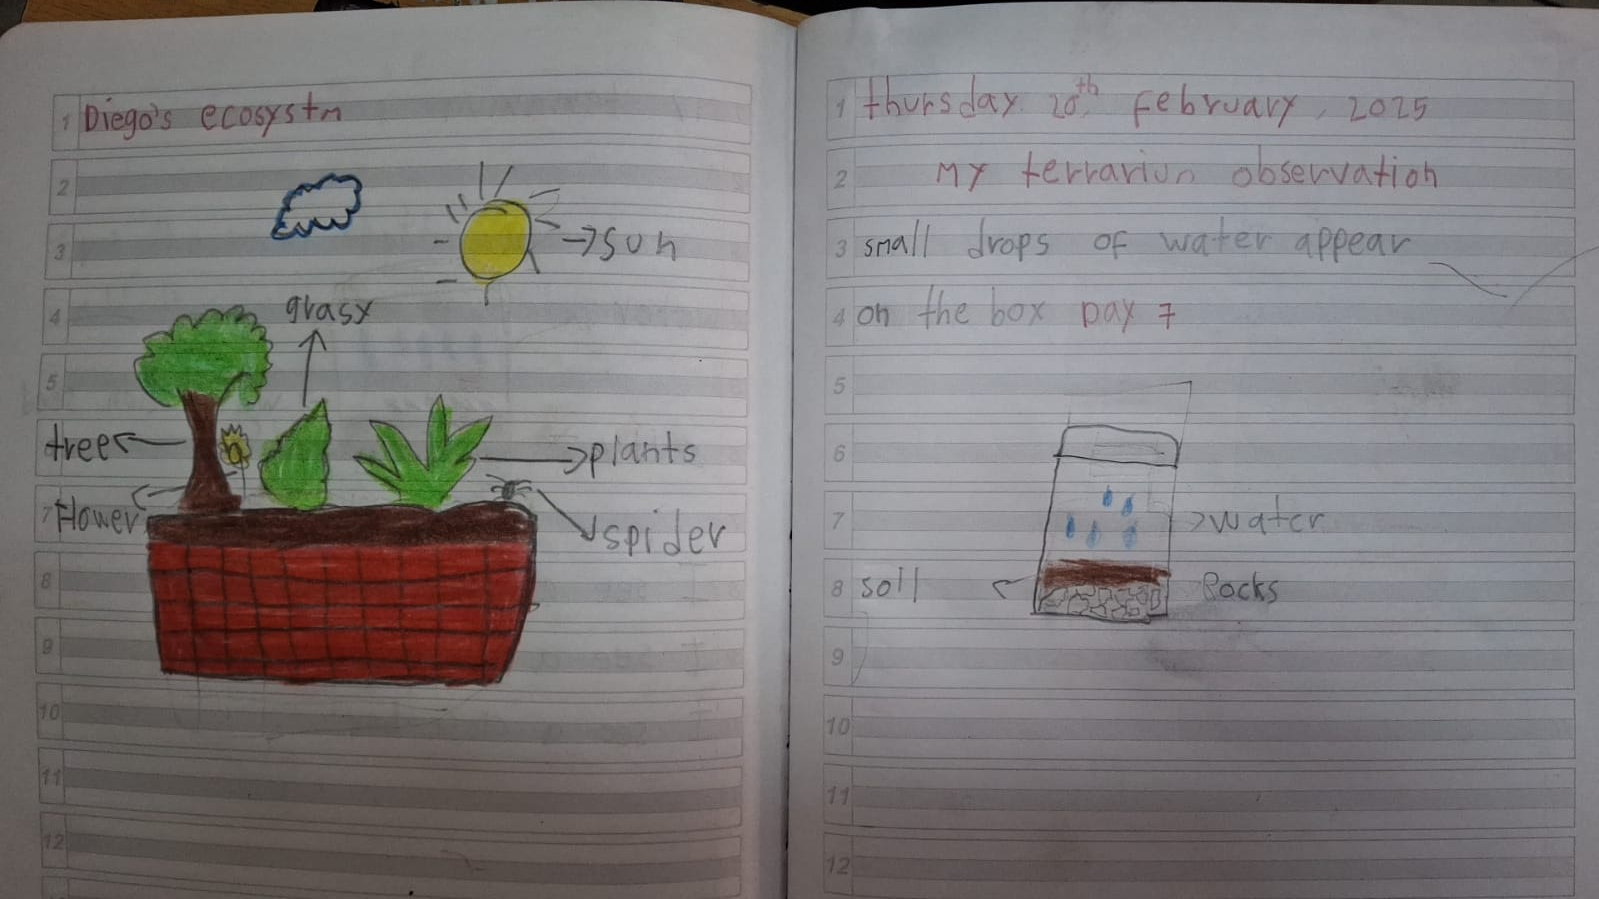 Diego's ecosystm
sun
grasy
tree
plants
Flower
spider
1
2
3
4
5
7
8
9
10
11
12
1 thursday 20th, February, 2025
2 My terrariun observation
3 small drops of water appear
4 on the box Day 7
5
6
7 water
8 soil Rocks
9
10
11
12